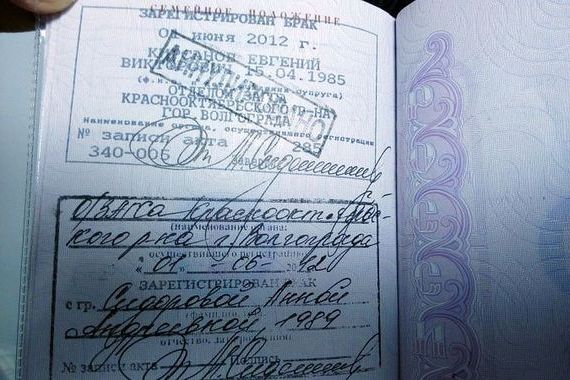 СЕМЕЙНОЕ ПОЛОЖЕНИЕ
ЗАРЕГИСТРИРОВАН БРАК
01 июня 2012 г.
ЕВГЕНИЙ
ВИКТОРОВИЧ 15.04.1985
ОТДЕЛОМ ЗАГСА
КРАСНООКТЯБРЬСКОГО Р-НА
ГОР. ВОЛГОГРАДА
Наименование органа, осуществившего регистрацию
№ записи акта 285
340-006 Заверил
О/ЗАГСа Краснооктябрьс-
кого р-на г. Волгограда
(наименование органа,
осуществившего регистрацию)
« 01 » - 06 -
ЗАРЕГИСТРИРОВАН БРАК
с гр. Сидоровой Анной
Андреевной, 1989
отчество, дата рожд.
№ записи акта Подпись